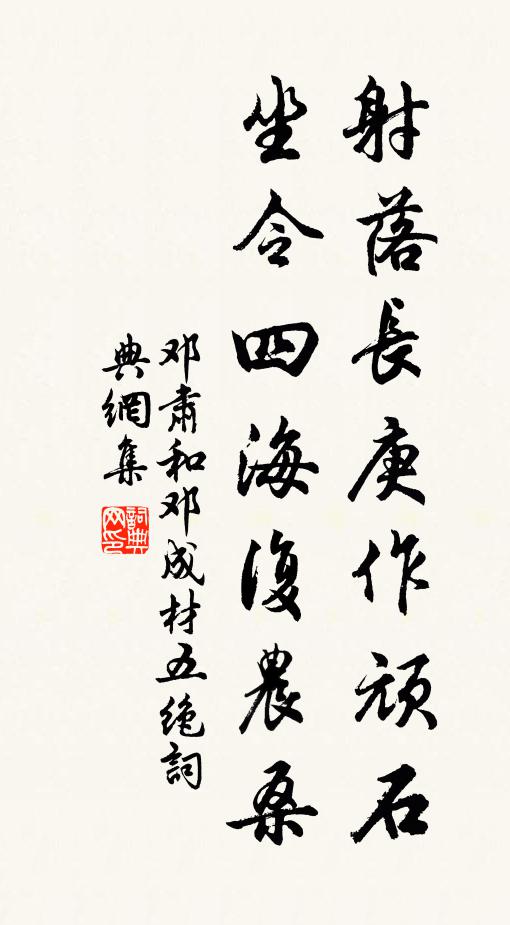 射落長庚作頑石
坐令四海復農桑
邓肅和邓成材五絶詞
典網集
詞典網印